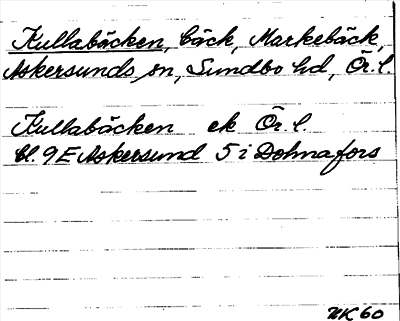 Kullabäcken, bäck, Markebäck,
Askersunds sn, Sundbo hd, Ör. l.
Kullabäcken ek Ör. l.
bl. 9 E Askersund 5 i Dohnafors
NK 60